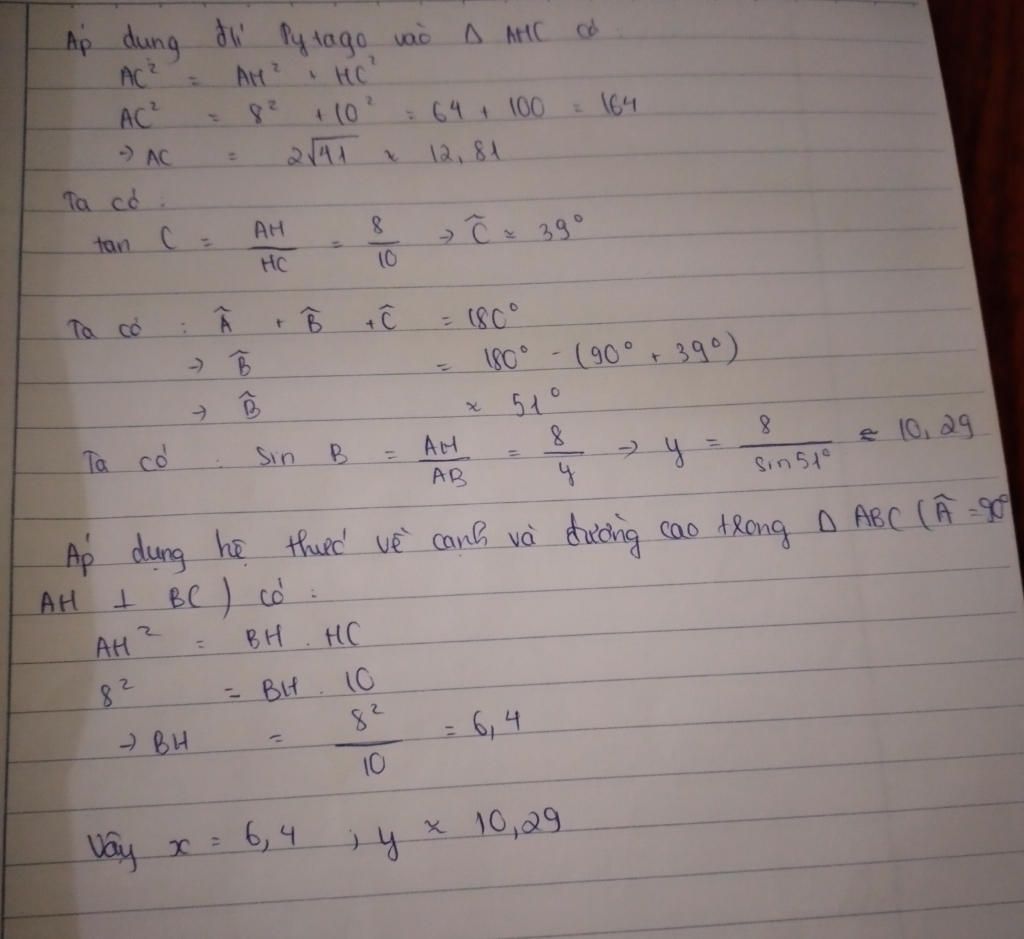 Áp dụng đlí Pytago vào Δ AHC có
AC² = AH² + HC²
AC² = 8² + 10² = 64 + 100 = 164
→ AC = 2√41 ≈ 12,81
Ta có :
tan C = AH/HC = 8/10 → Ĉ ≈ 39°
Ta có : Â + B̂ + Ĉ = 180°
→ B̂ = 180° - (90° + 39°)
→ B̂ ≈ 51°
Ta có : sin B = AH/AB = 8/y → y = 8/sin51° ≈ 10,29
Áp dụng hệ thức về cạnh và đường cao trong Δ ABC (Â = 90°
AH ⊥ BC) có :
AH² = BH . HC
8² = BH . 10
→ BH = 8²/10 = 6,4
Vậy x = 6,4 ; y ≈ 10,29